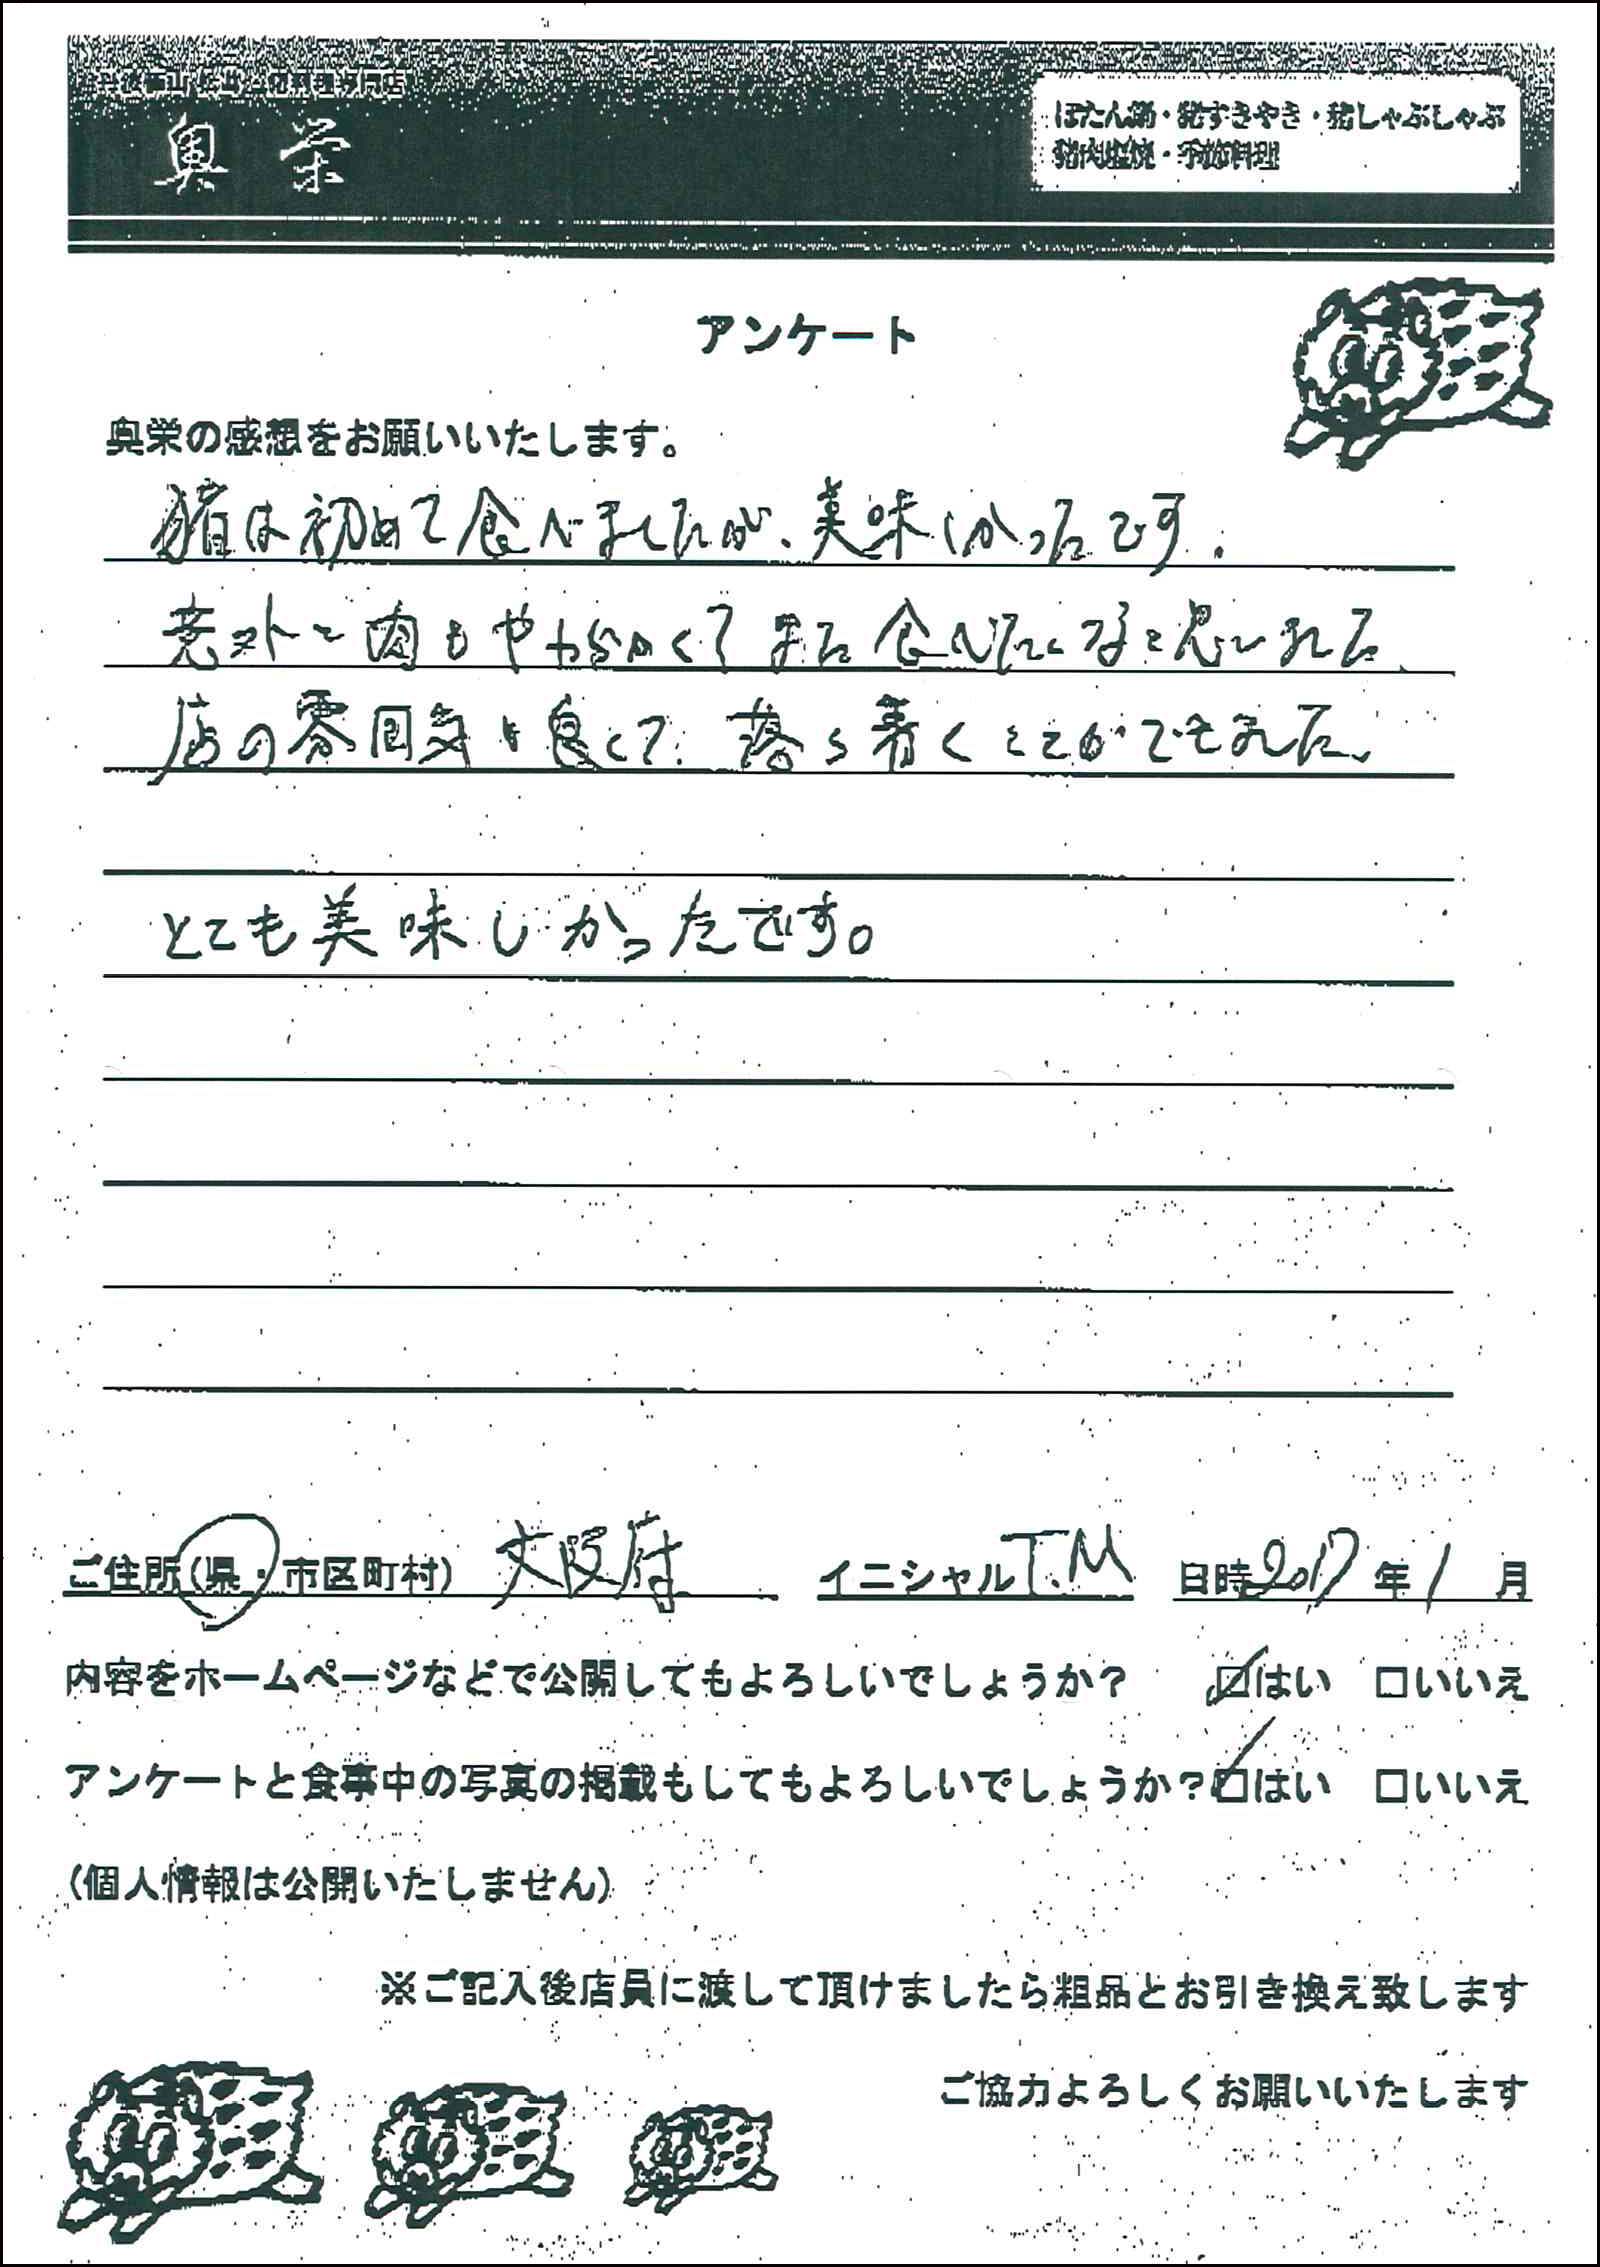 奥栄
ぼたん鍋・猪すきやき・猪しゃぶしゃぶ
猪肉塩焼・季節料理
アンケート
奥栄の感想をお願いいたします。
猪は初めて食べましたが、美味しかったです.
意外と肉もやわらかくてまた食べたいなと思いました
店の雰囲気も良くて、落ち着くことができました、
とても美味しかったです。
ご住所(県・市区町村) 大阪府 イニシャル T.M 日時 2017年 1月
内容をホームページなどで公開してもよろしいでしょうか? ☑はい □いいえ
アンケートと食事中の写真の掲載もしてもよろしいでしょうか? ☑はい □いいえ
(個人情報は公開いたしません)
※ご記入後店員に渡して頂けましたら粗品とお引き換え致します
ご協力よろしくお願いいたします